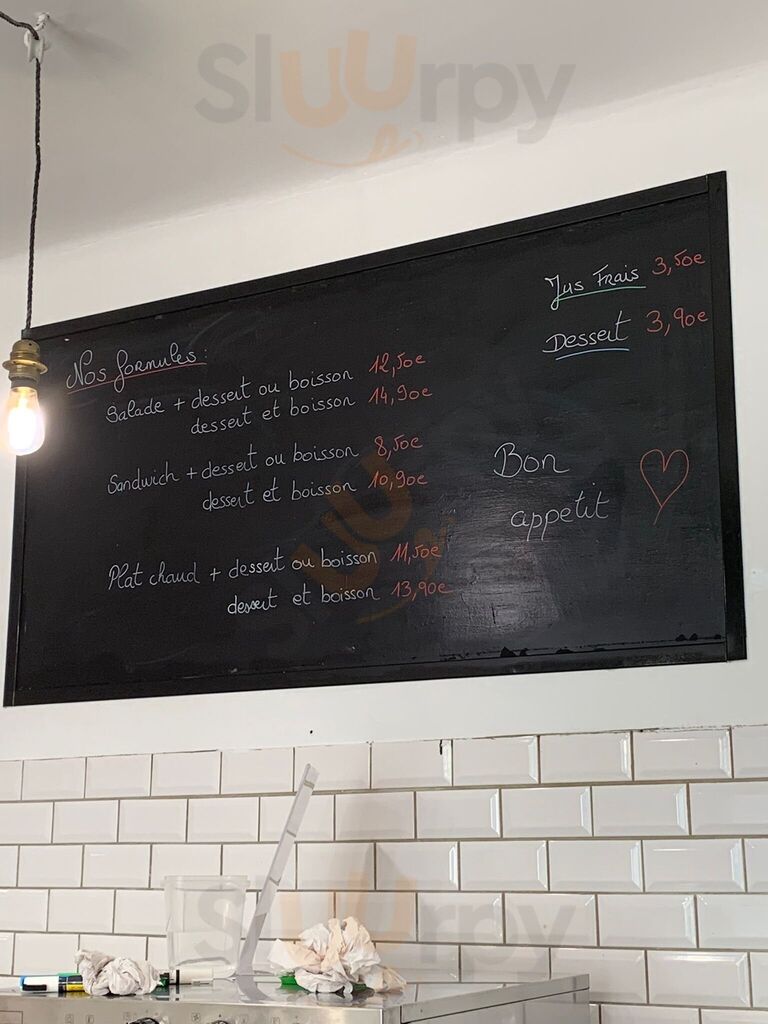 SlUUrpy
Nos formules :
Salade + dessert ou boisson 12,50e
dessert et boisson 14,90e
Sandwich + dessert ou boisson 8,50e
dessert et boisson 10,90e
Plat chaud + dessert ou boisson 11,50e
dessert et boisson 13,90e
Jus Frais 3,50e
Dessert 3,90e
Bon
appetit
SlUUrpy